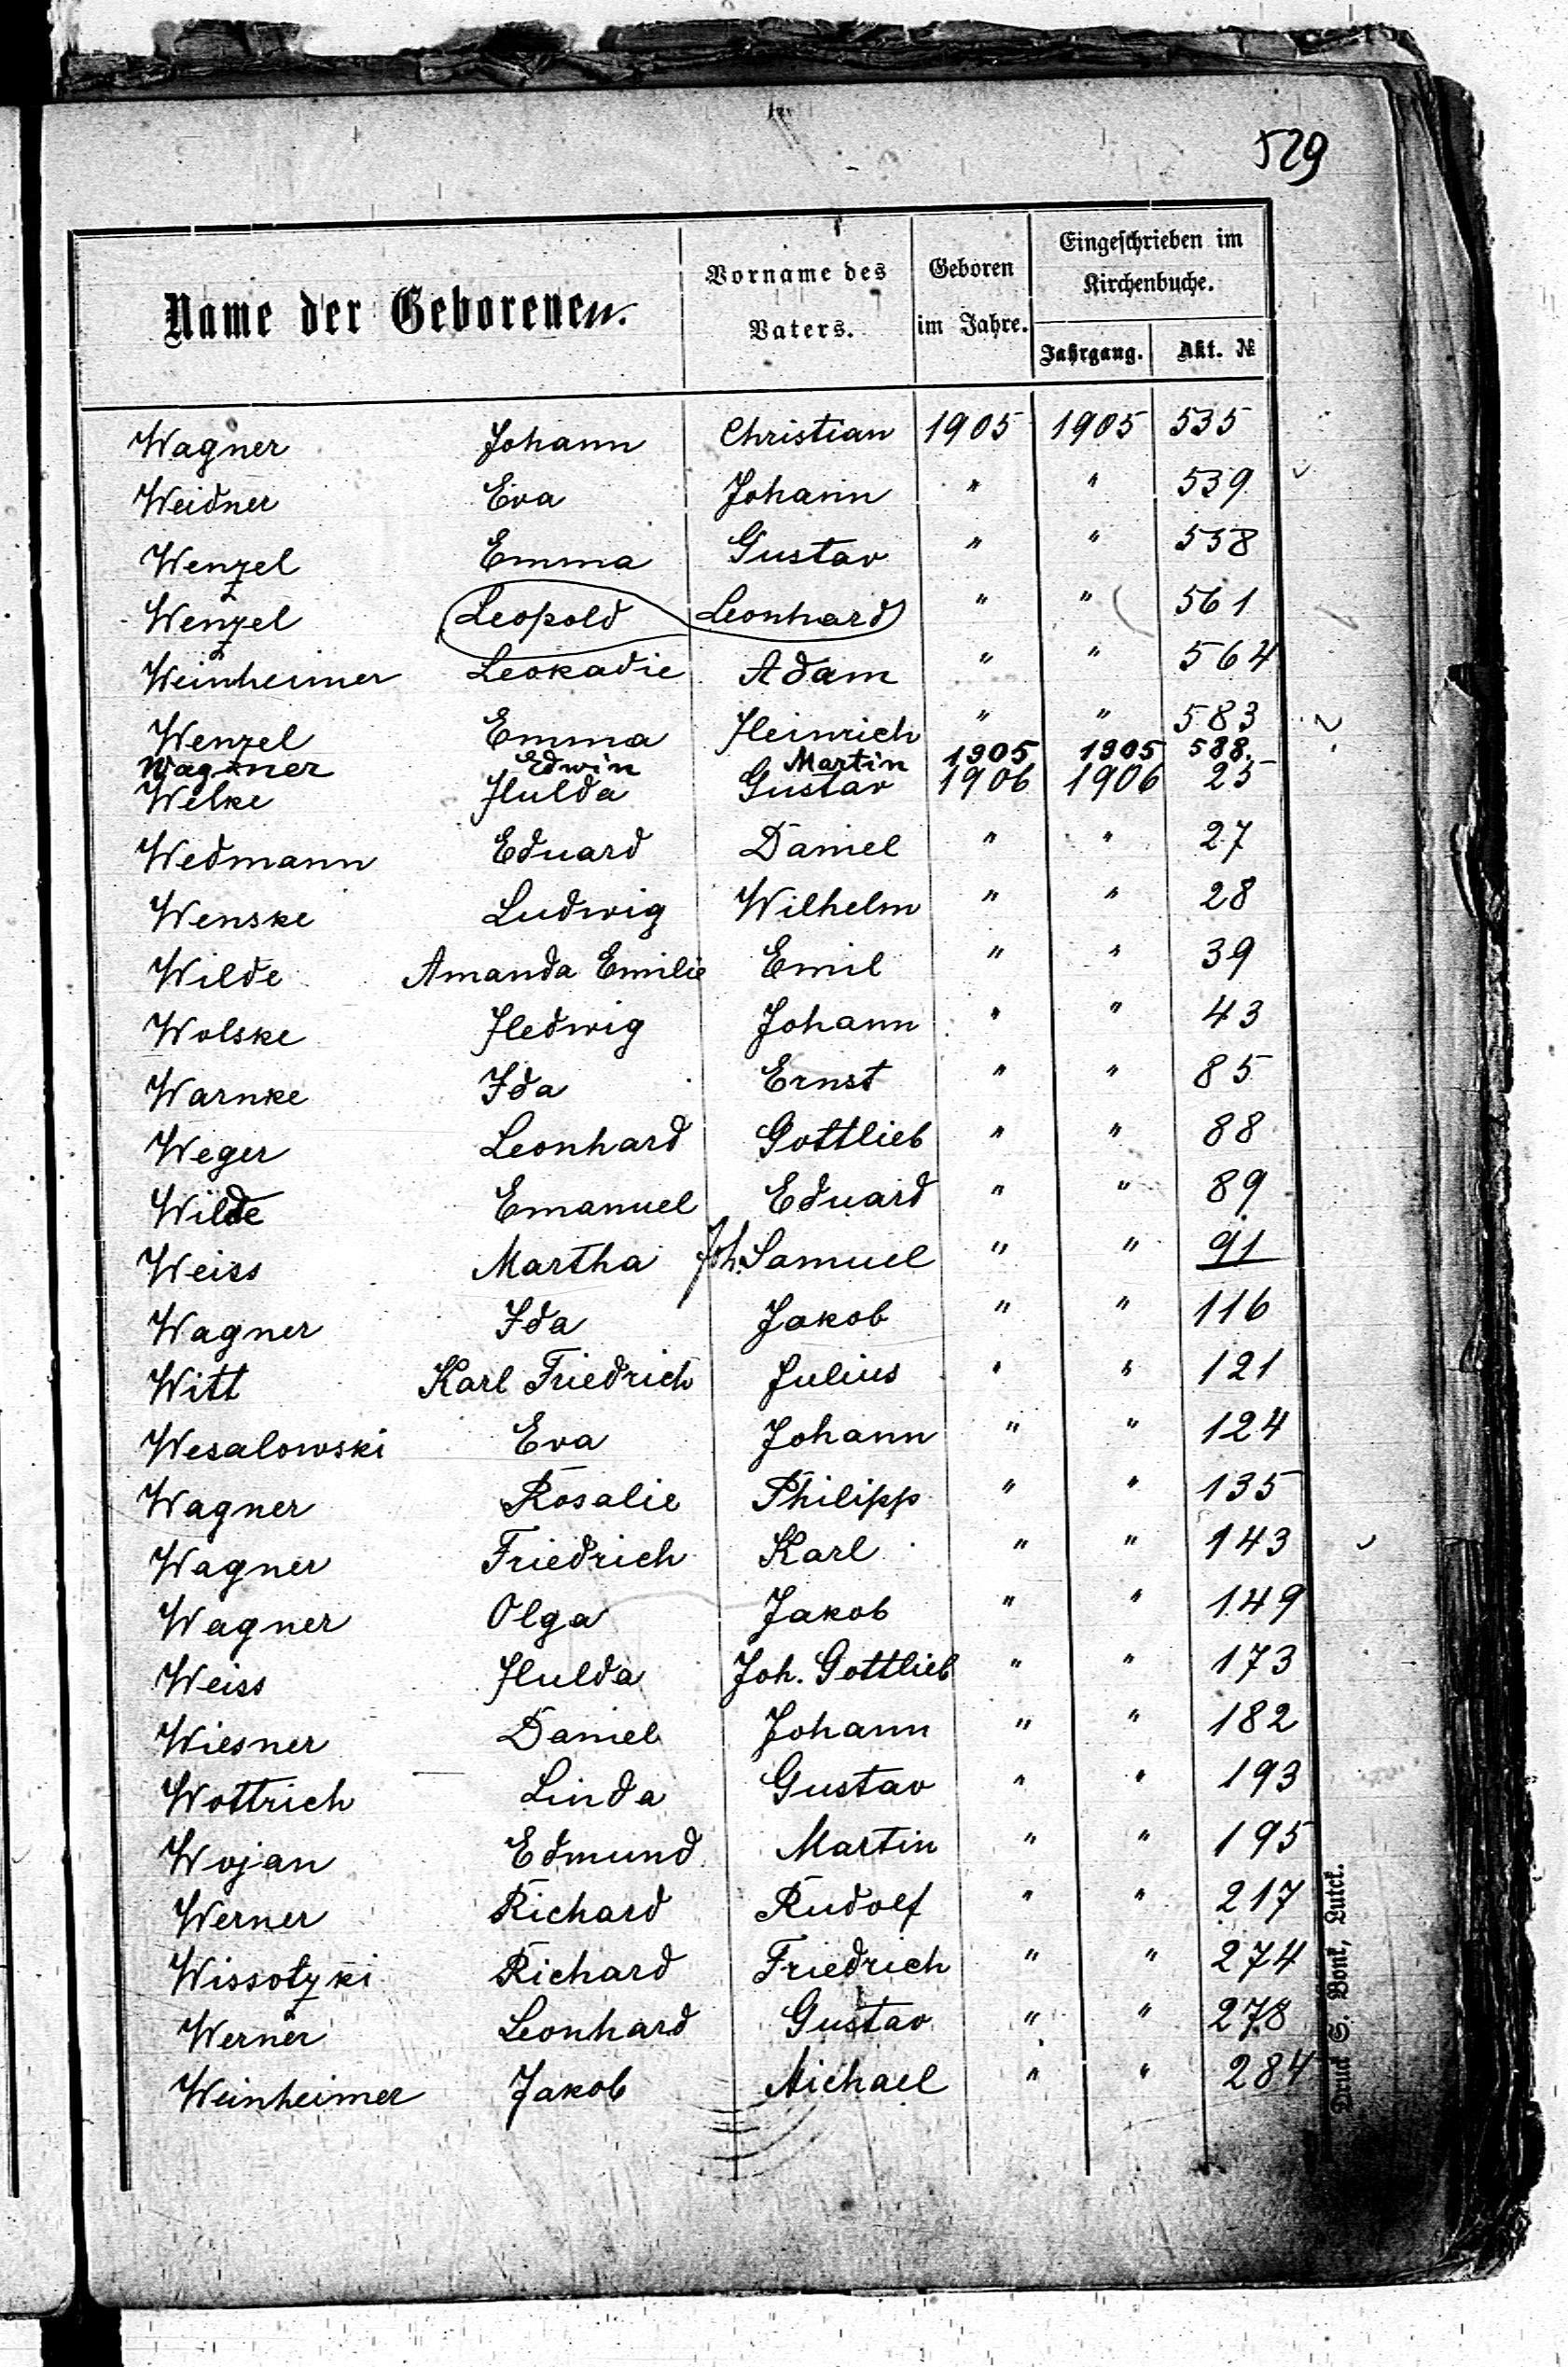 529
Name der Geborenen.
Vorname des Vaters.
Geboren im Jahre.
Eingeschrieben im Kirchenbuche.
Jahrgang.
Akt. №
Wagner Johann Christian 1905 1905 535
Weidner Eva Johann " " 539
Wenzel Emma Gustav " " 558
Wenzel Leopold Leonhard " " 561
Weinheimer Leokadie Adam " " 564
Wenzel Emma Heinrich " " 583
Wagner Edwin Martin 1905 1905 588.
Welke Hulda Gustav 1906 1906 25
Wedmann Eduard Daniel " " 27
Wenske Ludwig Wilhelm " " 28
Wilde Amanda Emilie Emil " " 39
Wolske Hedwig Johann " " 43
Warnke Ida Ernst " " 85
Weger Leonhard Gottlieb " " 88
Wilde Emanuel Eduard " " 89
Weiss Martha Joh. Samuel " " 91
Wagner Ida Jakob " " 116
Witt Karl Friedrich Julius " " 121
Wesalowski Eva Johann " " 124
Wagner Rosalie Philipp " " 135
Wagner Friedrich Karl " " 143
Wagner Olga Jakob " " 149
Weiss Hulda Joh. Gottlieb " " 173
Wiesner Daniel Johann " " 182
Wottrich Linda Gustav " " 193
Wojan Edmund Martin " " 195
Werner Richard Rudolf " " 217
Wissotzki Richard Friedrich " " 274
Werner Leonhard Gustav " " 278
Weinheimer Jakob Michael " " 284
Druck S. Bonk, Lutck.